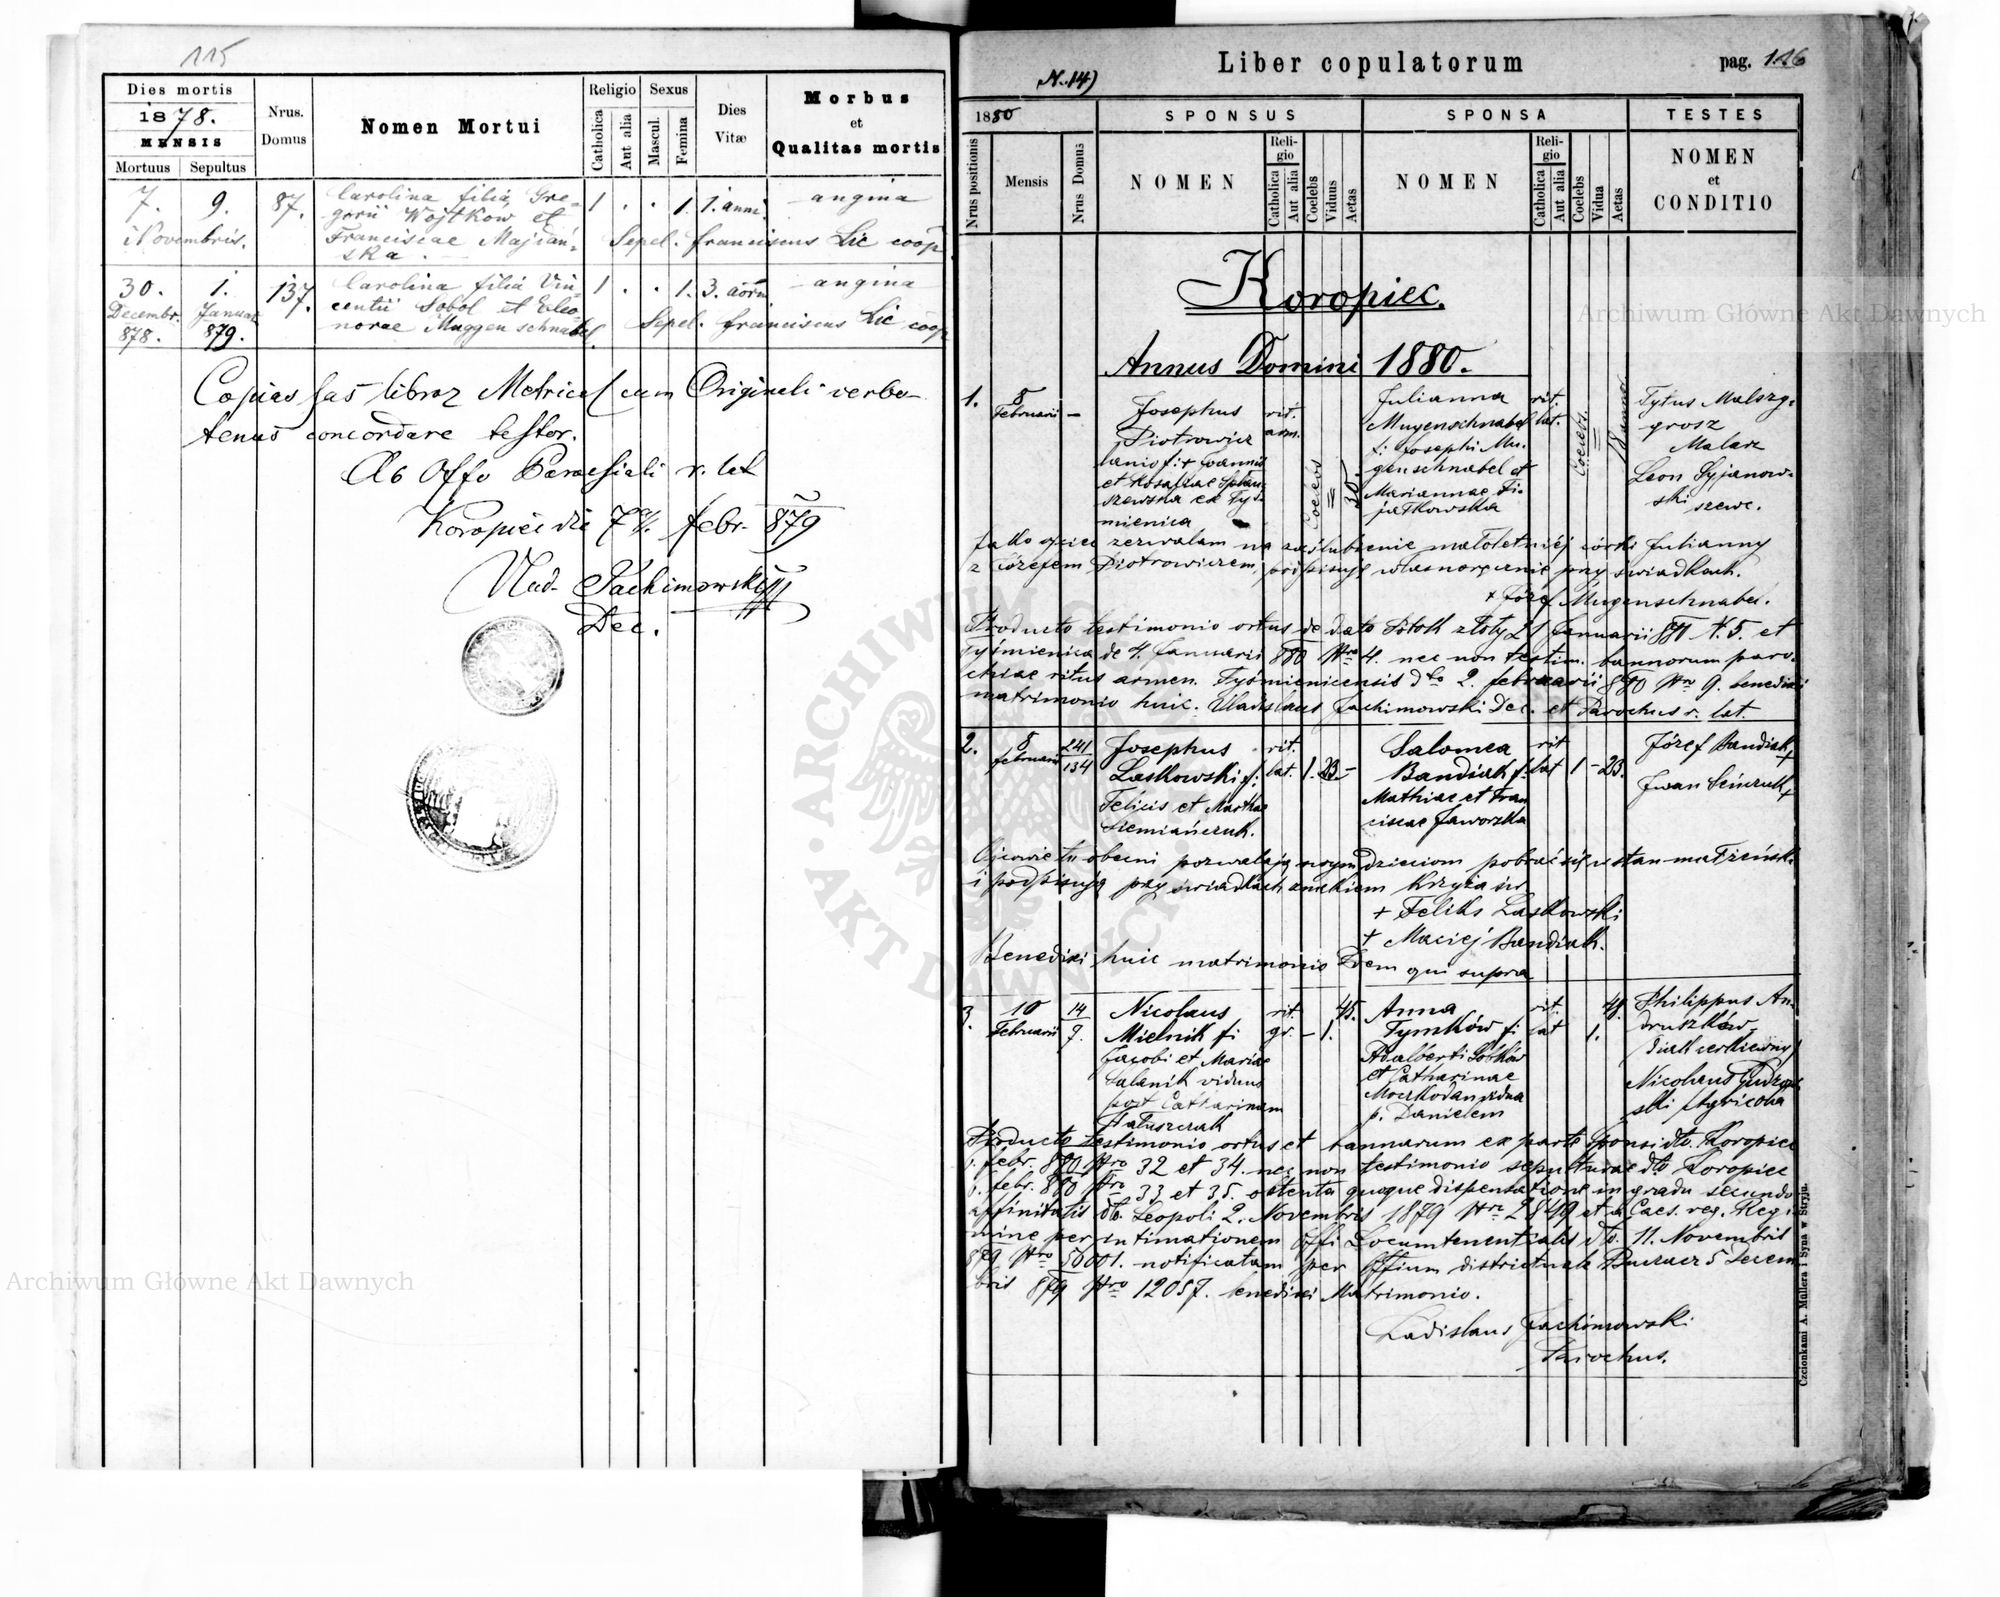 115
Dies mortis
1878.
MENSIS
Mortuus
Sepultus
Nrus.
Domus
Nomen Mortui
Religio
Catholica
Aut alia
Sexus
Mascul.
Femina
Dies
Vitæ
Morbus
et
Qualitas mortis
7. 9. 87. Carolina filia Gre- 1 . . 1. 1. anni. angina
Novembris. gorii Wojtkow et
Franciscae Majdań- Sepel. franciscus Lic coop
ska.
30. 1. 137. Carolina filia Vin- 1 . . 1. 3. angina
Decembr. Januar centii Sobol et Eleo-
878. 879. norae Muggenschnabel Sepel. franciscus Lic coop
Copias has libror Metrices cum Originali verbo-
tenus concordare testor.
Ab Offo Parochiali r. lat
Koropiec die 7 febr. 879
Vlad. Jachimowski
Dec.
N. 14)
Liber copulatorum
pag. 116
1880
Nrus positionis
Mensis
Nrus Domus
SPONSUS
NOMEN
Religio
Catholica
Aut alia
Coelebs
Viduus
Aetas
SPONSA
NOMEN
Religio
Catholica
Aut alia
Coelebs
Vidua
Aetas
TESTES
NOMEN
et
CONDITIO
Koropiec.
Annus Domini 1880.
1. 8 Februarii —
Josephus
Piotrowicz
et Rosaliae
ex Tyś-
mienica
rit.
arm.
Coelebs
30.
Julianna
Mugenschnabel
f: Josephi Mu-
genschnabel et
Mariannae Fi-
jałkowska
rit.
lat.
Coelebs.
Tytus
Malarz
Leon
szewc.
Jako ojciec zezwalam na zaślubienie małoletniéj córki Julianny
z Józefem Piotrowiczem, podpisuję własnoręcznie przy świadkach.
+ Józef Mugenschnabel.
Producto testimonio ortus de dato Potok złoty 21 Januarii N. 5. et
Tyśmienica de 4. Januarii 880 Nro 4. nec non testim. bannorum paro-
chiae ritus armen. Tyśmienicensis dto 2. februarii 880 Nro 9. benedixi
matrimonio huic. Vladislaus Jachimowski Dec. et Parochus r. lat.
2. 8 februarii 241 134
Josephus
Laskowski f:
Felicis et Marthae
Siemiańczuk.
rit.
lat. 1. 23.—
Salomea
Bandiak f:
Mathiae et Fran
ciscae Jaworska
rit
lat 1 — 23.
Józef Bandiak +
Iwan +
Ojcowie tu obecni pozwalają swoym dzieciom pobrać się w stan małżeńsk.
i podpisują przy świadkach znakiem krzyża św
+ Feliks Laskowski
+ Maciej Bandiak.
Benedixi huic matrimonio Idem qui supra
3. 10 Februarii 14 7.
Nicolaus
Mielnik fi
Jacobi et Mariae
Salanik viduus
post Catharinam
Hałuszczak
rit.
gr. — 1. 45.
Anna
Tymków fi
Adalberti
et Catharinae
Moczkodan vidua
p. Danielem
rit.
lat 1. 48.
Philippus An-
druszków
diak cerkiewny
Nicolaus
Agricola
Producto testimonio ortus et bannorum ex parte Sponsi dto. Koropiec
febr. 880 Nro 32 et 34. nec non testimonio sepulturae dto Koropiec
febr. 880 Nro 33 et 35. obtenta quoque dispensatione in gradu secundo
affinitatis dto. Leopoli 2. Novembris 1879 Nro 2849 et a Caes. reg. Regi-
mine per intimationem Offi Locumtenentialis dto. 11. Novembris
879 Nro 50001. notificatam per Offium districtuale Buczacz 5 Decem
bris 879 Nro 12057. benedixi Matrimonio.
Ladislaus Jachimowski
Parochus.
Czcionkami A. Müllera i Syna w Stryju.
Archiwum Główne Akt Dawnych
Archiwum Główne Akt Dawnych
ARCHIWUM
AKT DAWNYCH